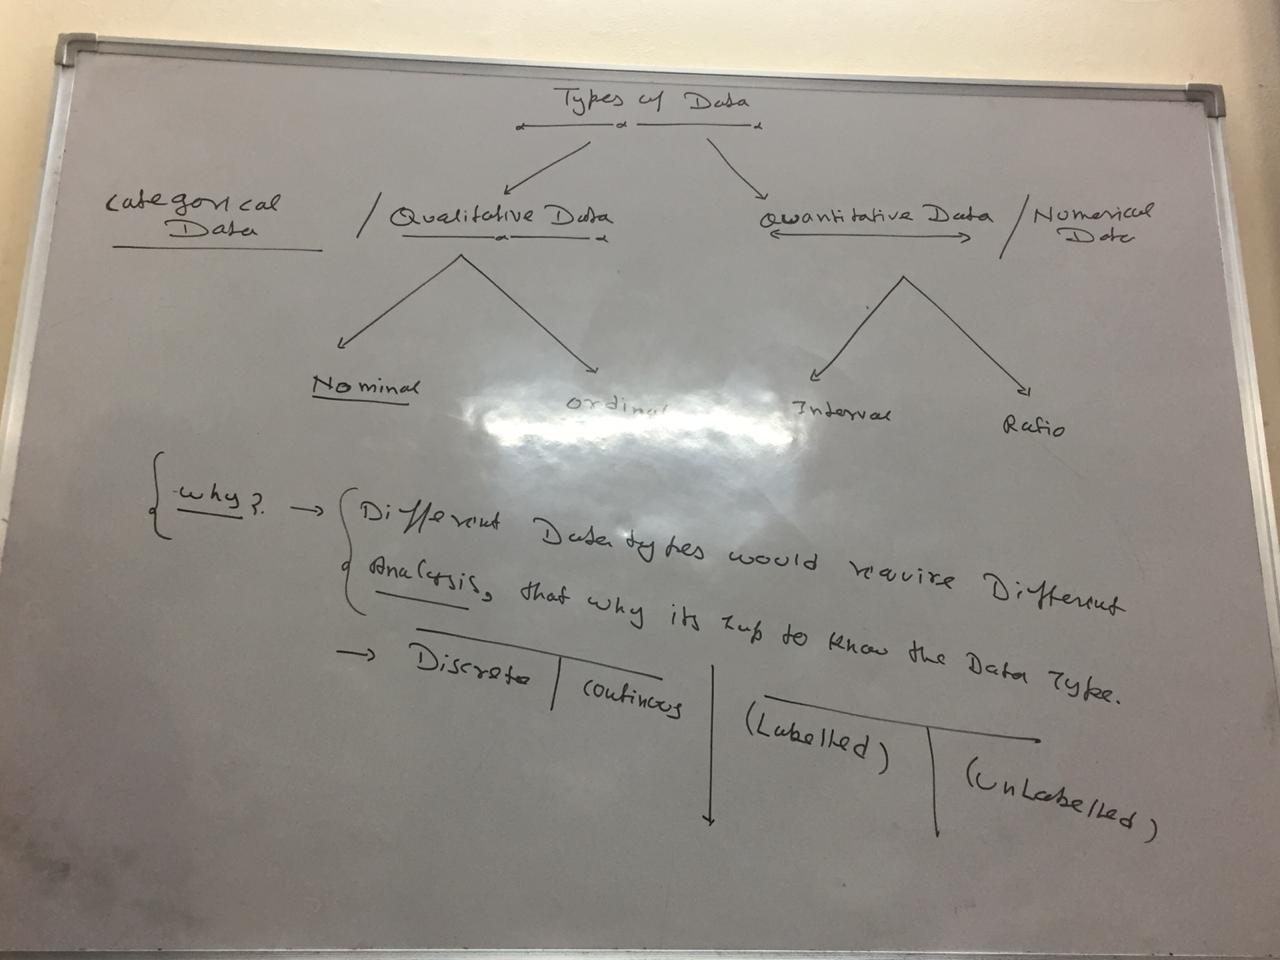 Types of Data
Categorical / Qualitative Data
Data
Quantitative Data / Numerical
Data
Nominal
Ordinal
Interval
Ratio
Why? → Different Data types would require Different
Analysis, that why its Imp to know the Data Type.
→ Discrete | Continous
(Labelled) | (UnLabelled)